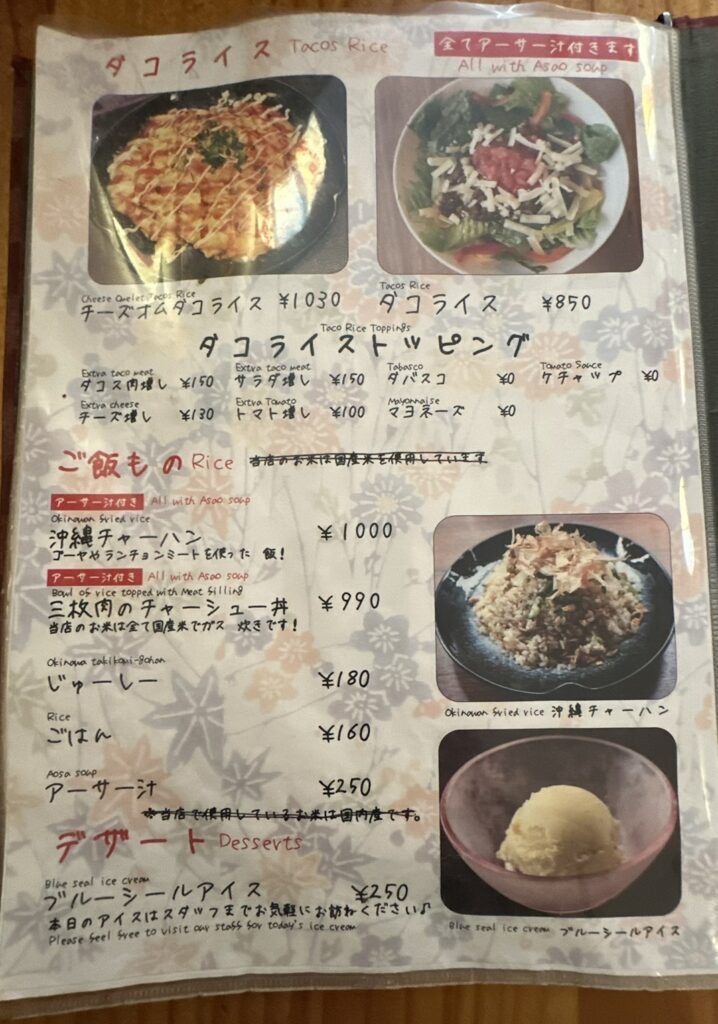 タコライス Tacos Rice
全てアーサー汁付きます
All with Asao soup
Cheese Omelet Tacos Rice
チーズオムタコライス ¥1030
Tacos Rice
タコライス ¥850
Taco Rice Toppings
タコライストッピング
Extra taco meat
タコス肉増し ¥150
Extra taco meat
サラダ増し ¥150
Tabasco
タバスコ ¥0
Tomato Sauce
ケチャップ ¥0
Extra cheese
チーズ増し ¥130
Extra Tomato
トマト増し ¥100
Mayonnaise
マヨネーズ ¥0
ご飯もの Rice 当店のお米は国産米を使用しています
アーサー汁付き All with Asao soup
Okinawan fried rice
沖縄チャーハン ¥1000
ゴーヤやランチョンミートを使った 飯!
アーサー汁付き All with Asao soup
Bowl of rice topped with Meat filling
三枚肉のチャーシュー丼 ¥990
当店のお米は全て国産米でガス 炊きです!
Okinawa takikomi-gohan
じゅーしー ¥180
Rice
ごはん ¥160
Aosa soup
アーサー汁 ¥250
※当店で使用しているお米は国内産です。
Okinawan fried rice 沖縄チャーハン
デザート Desserts
Blue seal ice cream
ブルーシールアイス ¥250
本日のアイスはスタッフまでお気軽にお訪ねください♪
Please feel free to visit our staff for today's ice cream
Blue seal ice cream ブルーシールアイス